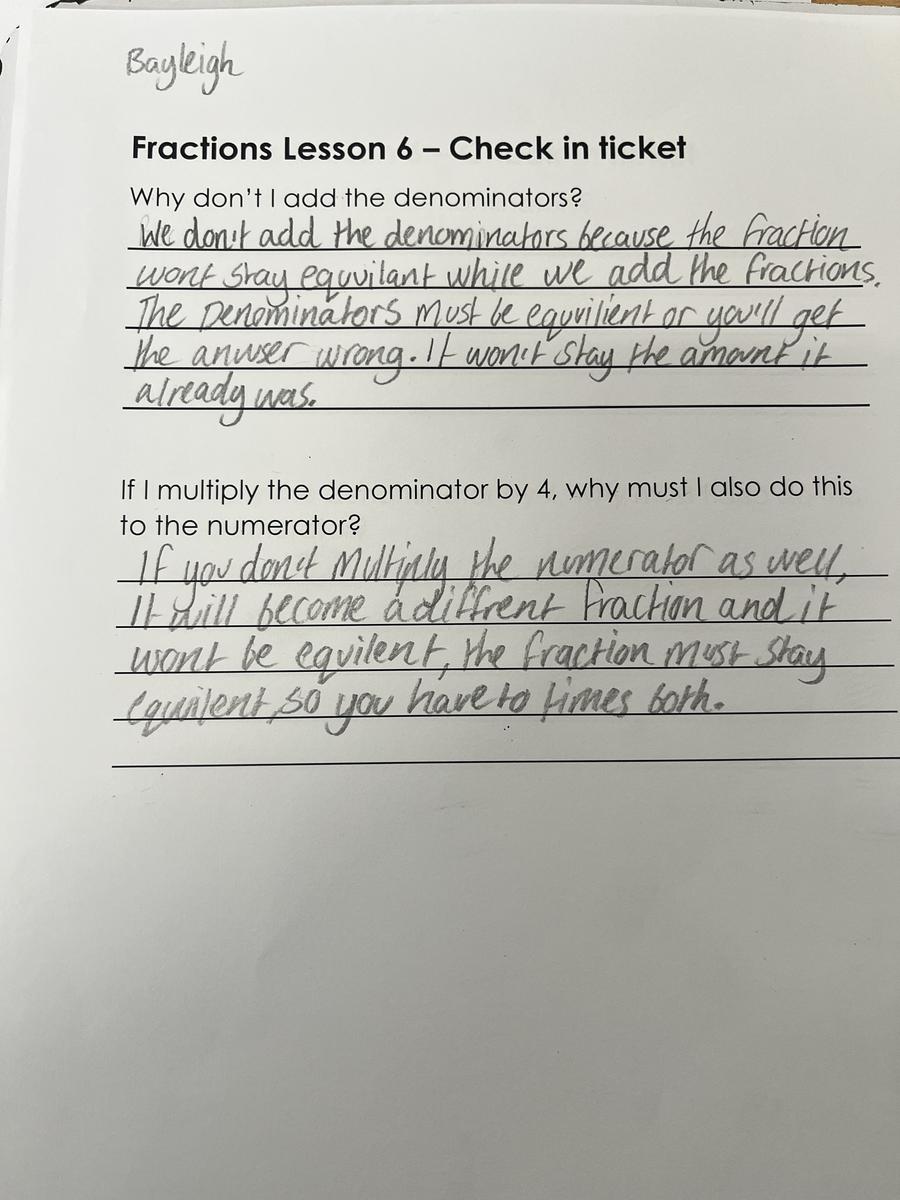 Bayleigh
Fractions Lesson 6 – Check in ticket
Why don't I add the denominators?
We don't add the denominators because the fraction
wont stay equvilant while we add the fractions.
The Denominators must be equvilient or you'll get
the anwser wrong. It won't stay the amount it
already was.
If I multiply the denominator by 4, why must I also do this
to the numerator?
If you don't multiply the numerator as well,
It will become a diffrent fraction and it
wont be equilent, the fraction must stay
equilent, so you have to times both.